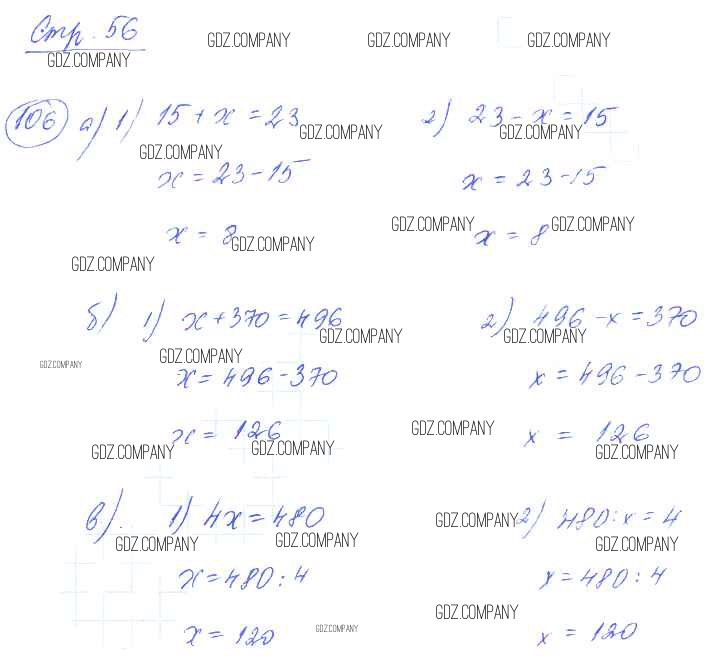 Стр. 56
GDZ.COMPANY GDZ.COMPANY GDZ.COMPANY
GDZ.COMPANY
106 а) 1) 15 + x = 23 2) 23 - x = 15
GDZ.COMPANY GDZ.COMPANY
GDZ.COMPANY
x = 23 - 15 x = 23 - 15
GDZ.COMPANY GDZ.COMPANY
x = 8 x = 8
GDZ.COMPANY
GDZ.COMPANY
б) 1) x + 370 = 496 2) 496 - x = 370
GDZ.COMPANY GDZ.COMPANY
GDZ.COMPANY
GDZ.COMPANY
x = 496 - 370 x = 496 - 370
GDZ.COMPANY
x = 126 x = 126
GDZ.COMPANY GDZ.COMPANY GDZ.COMPANY
в). 1) 4x = 480 2) 480 : x = 4
GDZ.COMPANY
GDZ.COMPANY GDZ.COMPANY GDZ.COMPANY
x = 480 : 4 x = 480 : 4
GDZ.COMPANY
x = 120 x = 120
GDZ.COMPANY